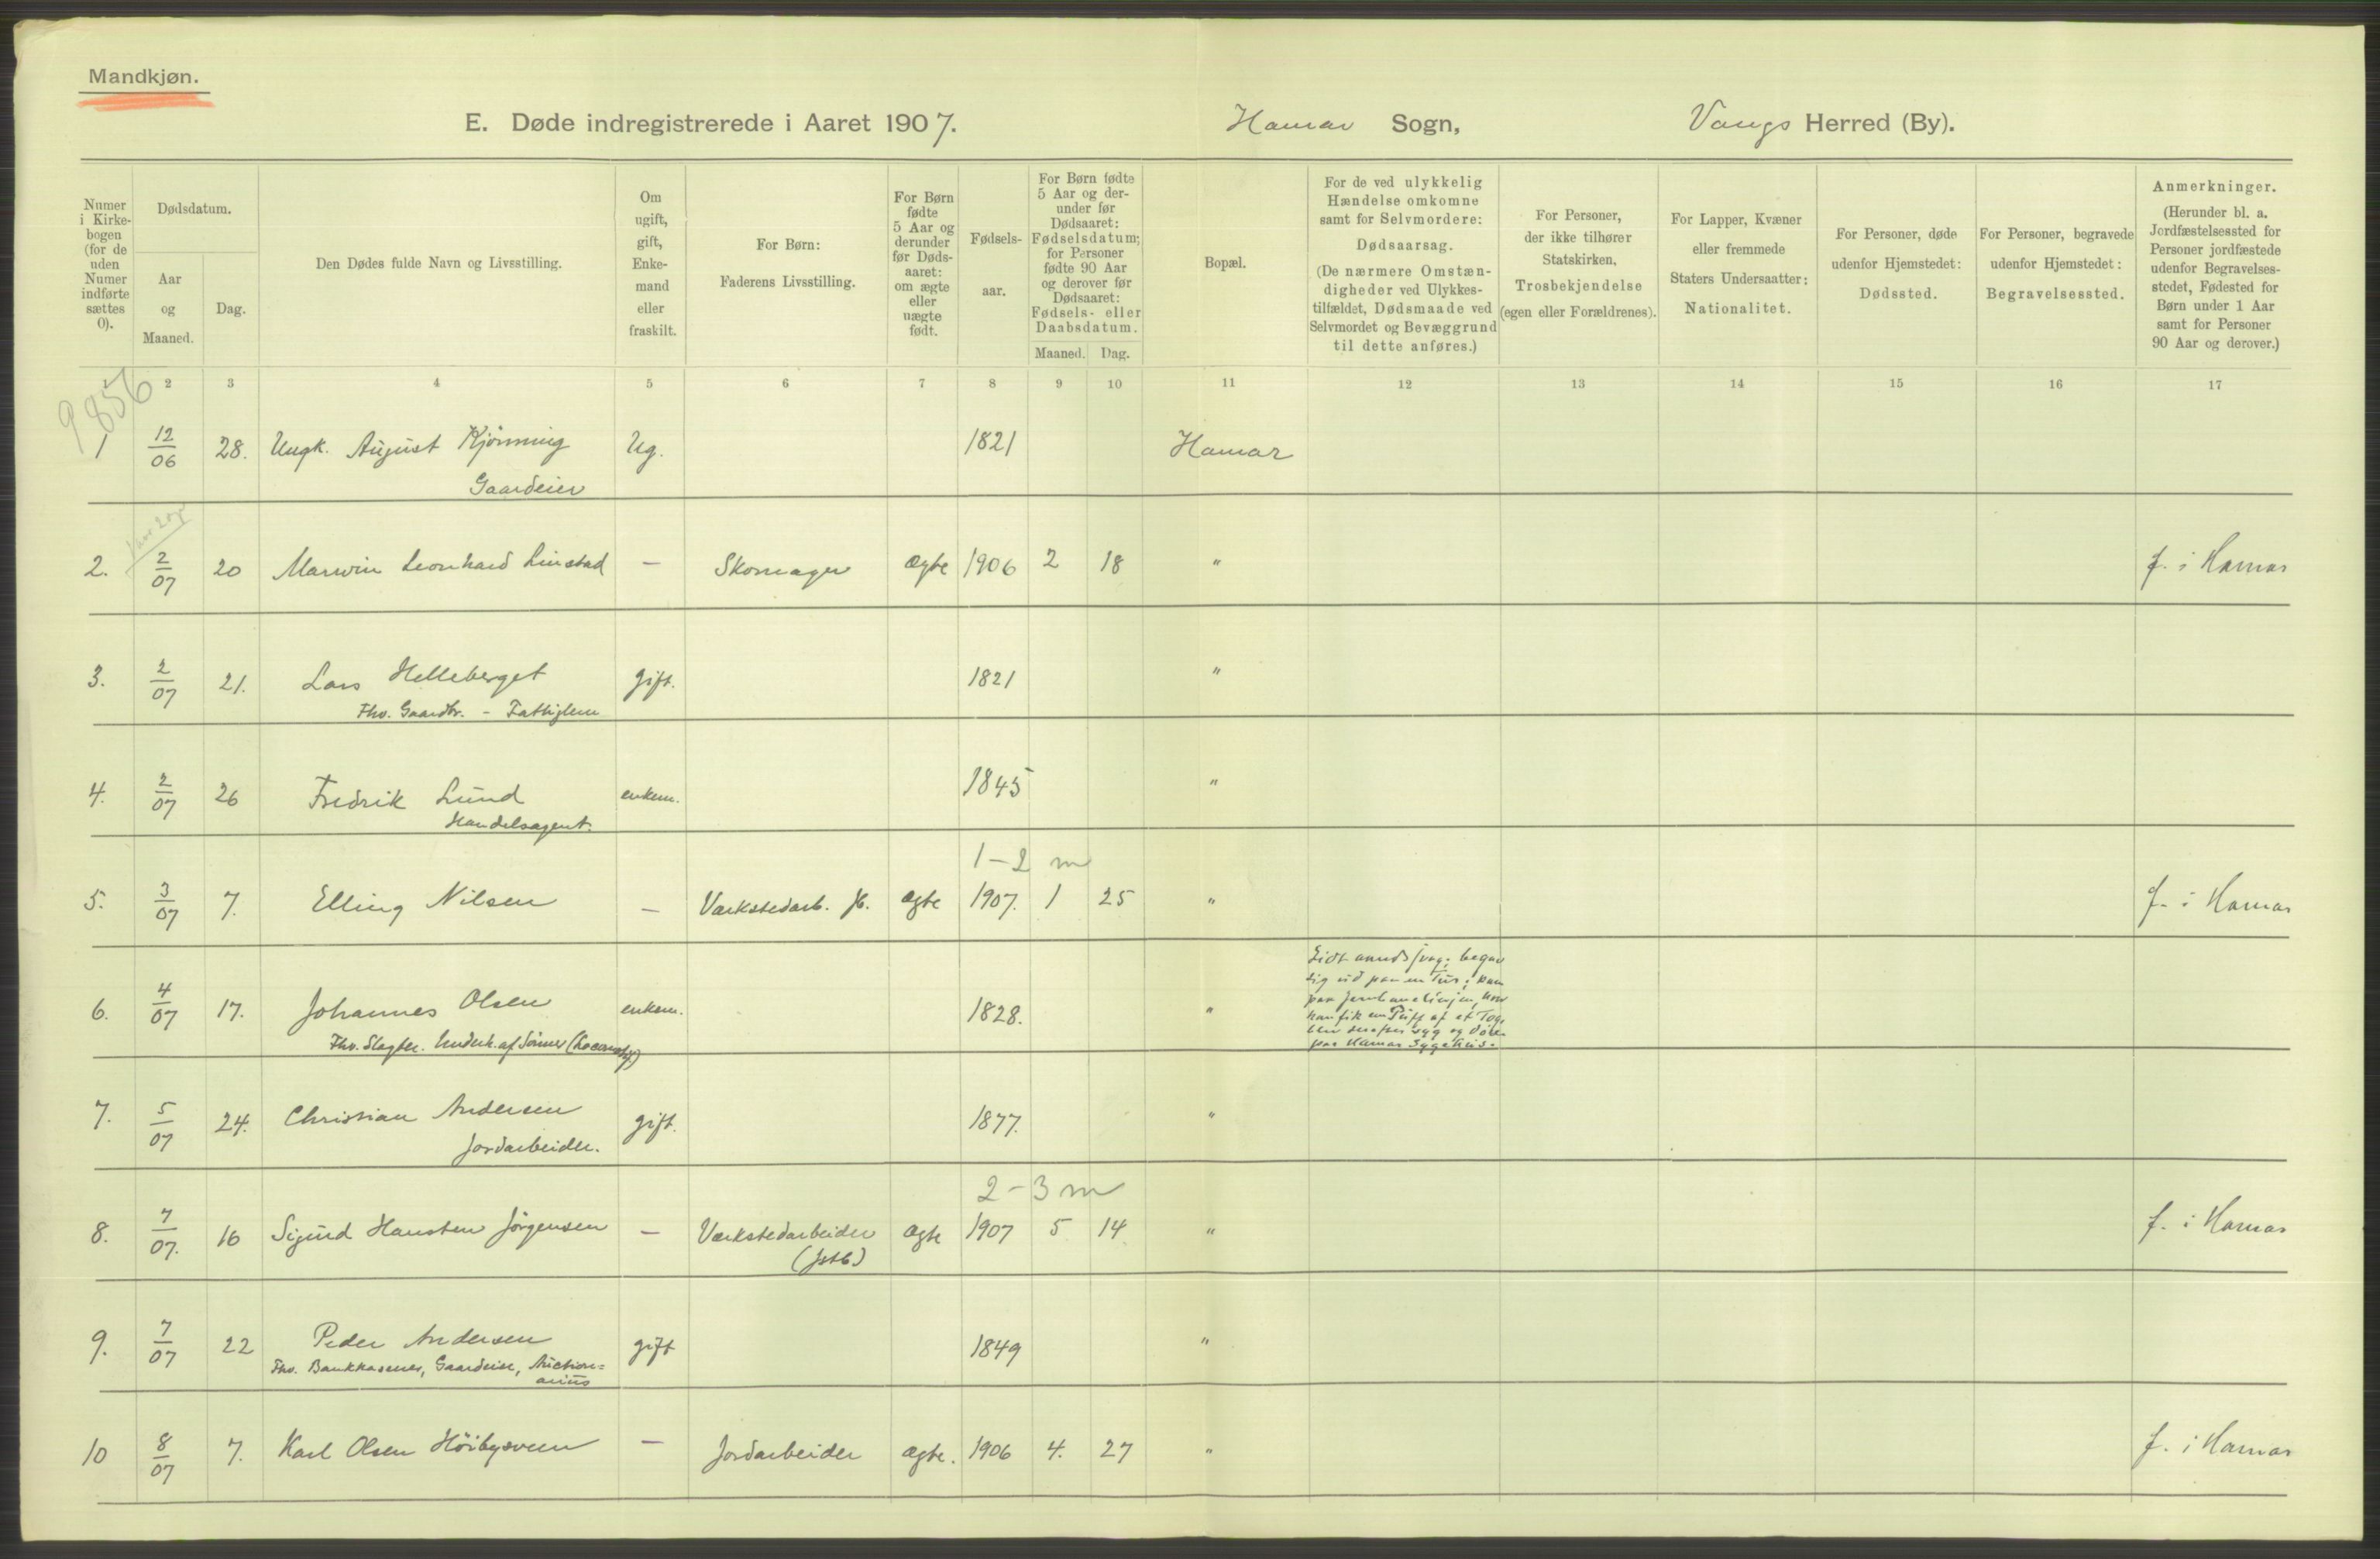 Mandkjøn.
E. Døde indregistrerede i Aaret 1907. Hamar Sogn, Vangs Herred (By).
Numer i Kirke-bogen (for de uden Numer indførte sættes 0).
Dødsdatum.
Aar og Maaned.
Dag.
Den Dødes fulde Navn og Livsstilling.
Om ugift, gift, Enke-mand eller fraskilt.
For Børn: Faderens Livsstilling.
For Børn fødte 5 Aar og derunder før Døds-aaret: om ægte eller uægte født.
Fødsels-aar.
For Børn fødte 5 Aar og der-under før Dødsaaret: Fødselsdatum; for Personer fødte 90 Aar og derover før Dødsaaret: Fødsels- eller Daabsdatum.
Maaned. Dag.
Bopæl.
For de ved ulykkelig Hændelse omkomne samt for Selvmordere: Dødsaarsag. (De nærmere Omstæn-digheder ved Ulykkes-tilfældet, Dødsmaade ved Selvmordet og Bevæggrund til dette anføres.)
For Personer, der ikke tilhører Statskirken, Trosbekjendelse (egen eller Forældrenes).
For Lapper, Kvæner eller fremmede Staters Undersaatter: Nationalitet.
For Personer, døde udenfor Hjemstedet: Dødssted.
For Personer, begravede udenfor Hjemstedet: Begravelsessted.
Anmerkninger. (Herunder bl. a. Jordfæstelsessted for Personer jordfæstede udenfor Begravelses-stedet, Fødested for Børn under 1 Aar samt for Personer 90 Aar og derover.)
1 2 3 4 5 6 7 8 9 10 11 12 13 14 15 16 17
9856
1 12/06 28. Ungk. August Kjönning Ug. 1821 Hamar
Gaardeier
2. 2/07 20 Marwin Leonhard Linstad — Skomager ægte 1906 2 18 " f. i Hamar
3. 2/07 21. Lars Helleberget gift. 1821 "
Fhv. Gaardbr. - Fattiglem
4. 2/07 26 Fredrik Lund enkem. 1845 "
Handelsagent.
1-2 m
5. 3/07 7. Elling Nilsen — Værkstedarb. ægte 1907. 1 25 " f. i Hamar
6. 4/07 17. Johannes Olsen enkem. 1828. "
Fhv. Slagter. Underh. af Sønner
Lidt aandssvag; begav
sig ud paa en Tur; kom
paa Jernbanelinjen, hvor
han fik en Puff af et Tog,
blev derefter syg og døde
paa Hamar Sygehus.
7. 5/07 24. Christian Andersen gift. 1877. "
Jordarbeider.
2-3 m
8. 7/07. 16 Sigurd Hansten Jörgensen — Værkstedarbeider ægte 1907 5 14. " f. i Hamar
(Jstb)
9. 7/07 22 Peder Andersen gift 1849 "
Fhv. Bankkaserer, Gaardeier, Auction=
arius
10 8/07 7. Karl Olsen Höibysveen — Jordarbeider ægte. 1906 4. 27 " f. i Hamar